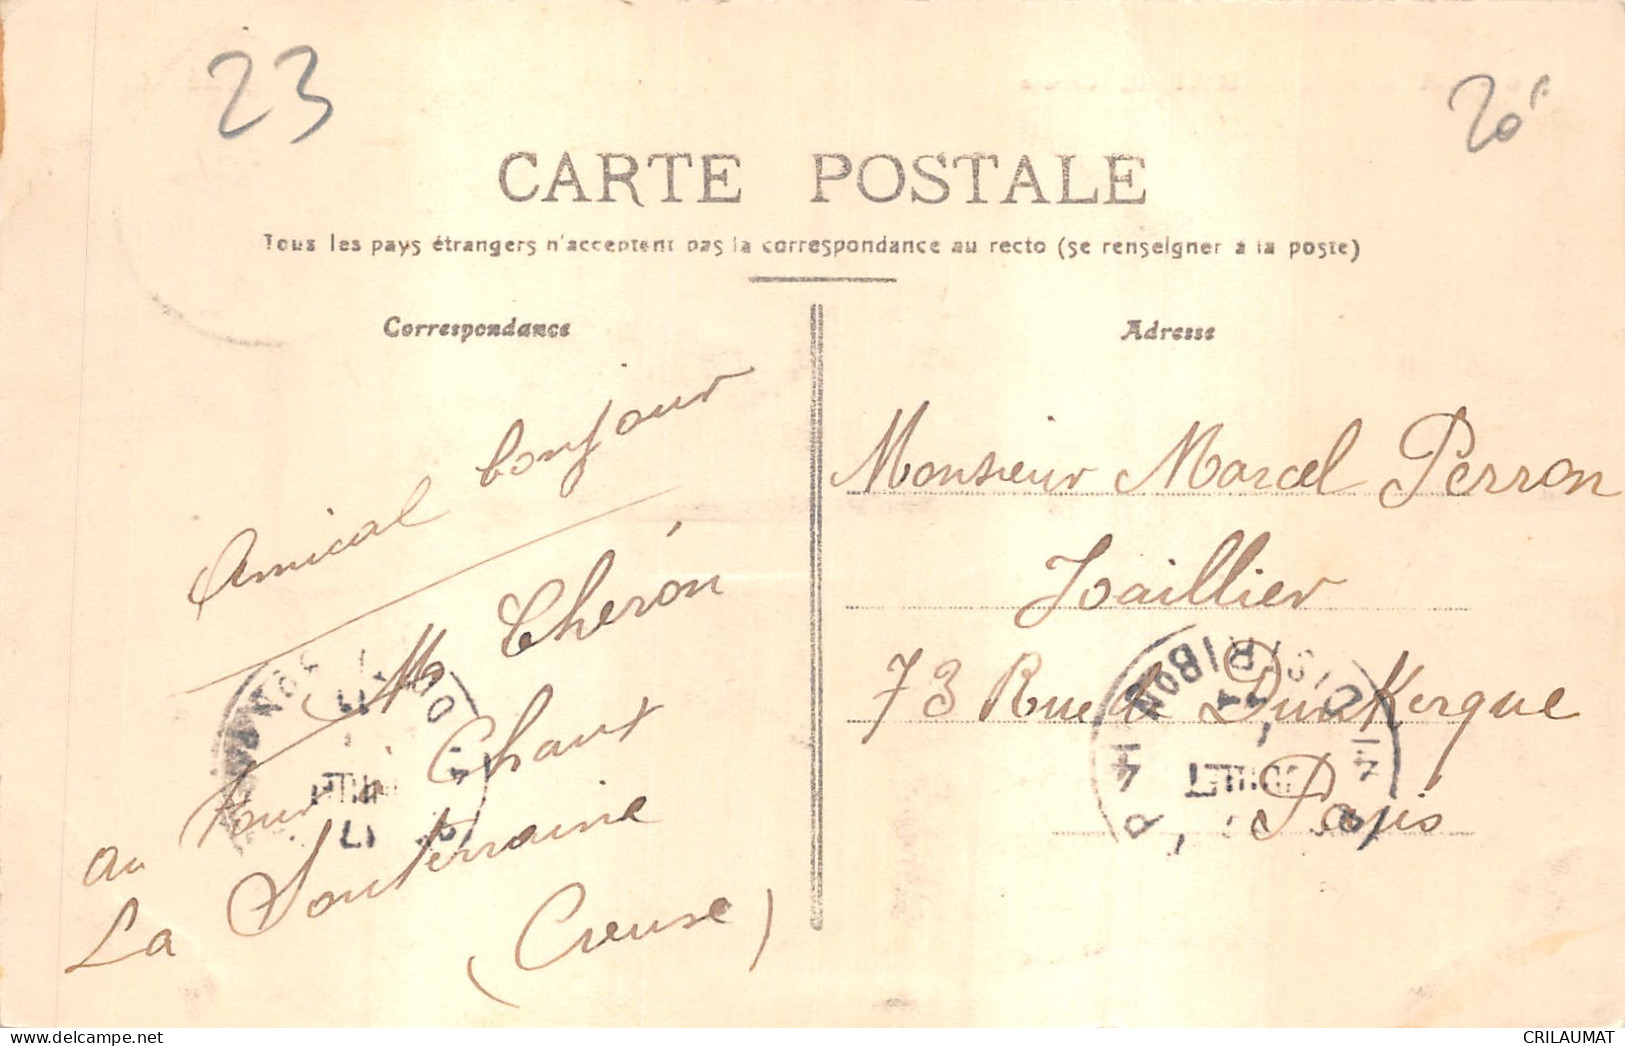 23
20F
CARTE POSTALE
Tous les pays étrangers n'acceptent pas la correspondance au recto (se renseigner à la poste)
Correspondance
Adresse
Amical bonjour
M Chéron
au Four à Chaux
La Souterraine
(Creuse)
Monsieur Marcel Perron
Joaillier
73 Rue de Dunkerque
Paris
DISTRIBON
JUILLET
CRILAUMAT